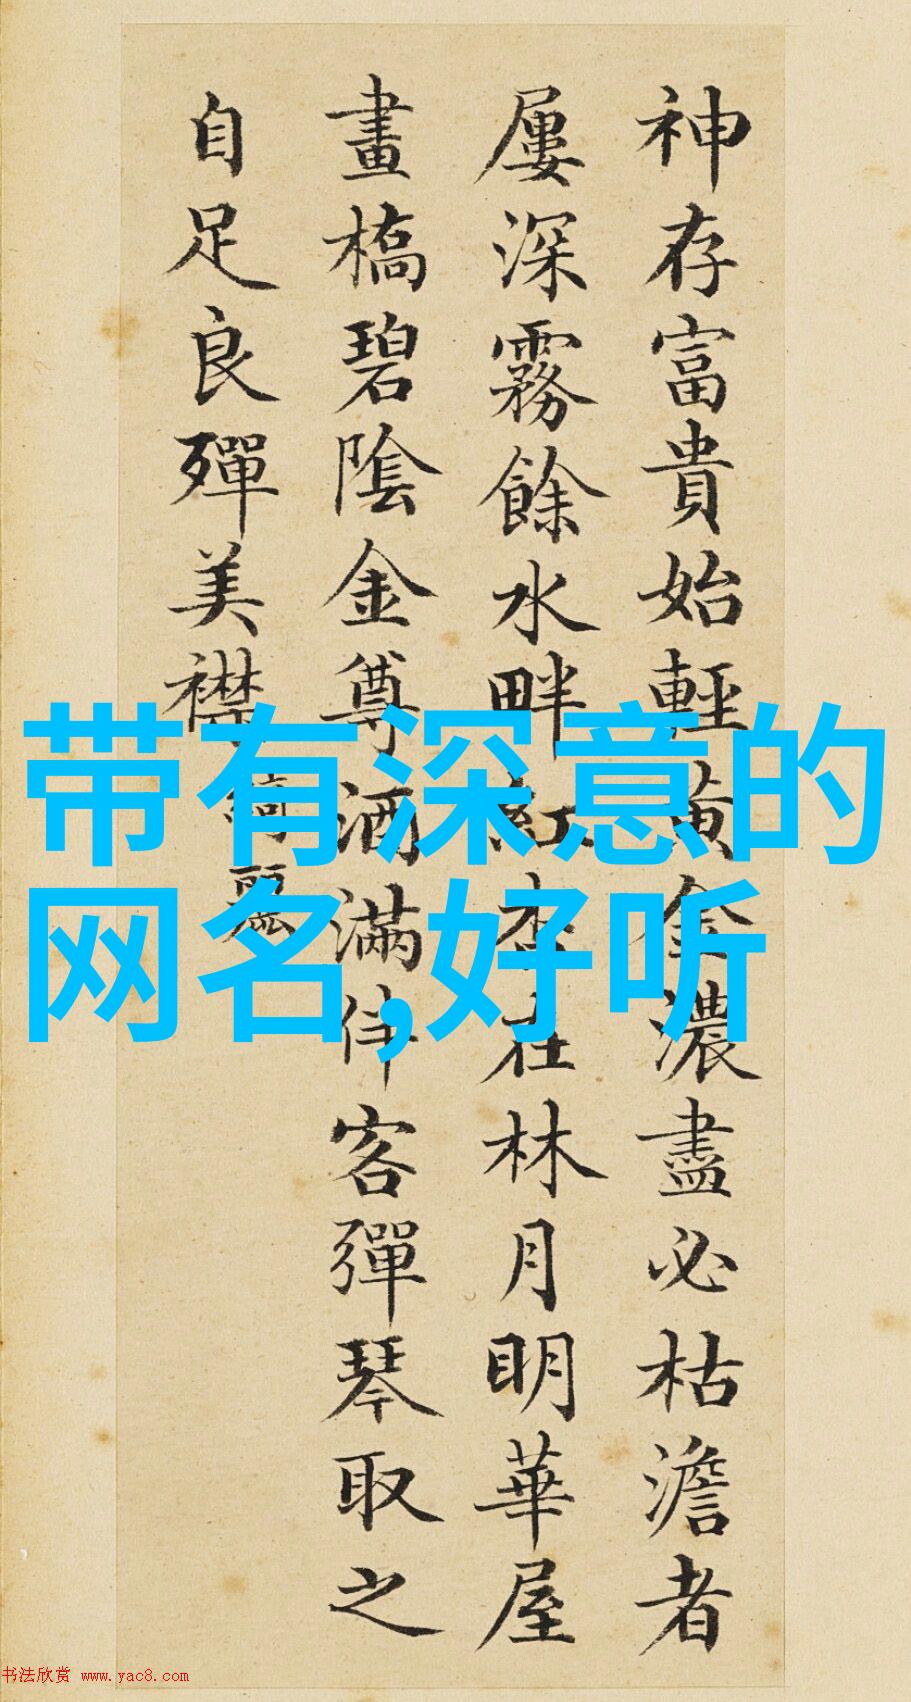 神存富貴始輕黃金濃盡必枯澹者
屢深霧餘水畔紅杏在林月明華屋
畫橋碧陰金尊酒滿伴客彈琴取之
自足良殫美襟
綺麗
带有深意的
网名,好听
书法欣赏 www.yac8.com